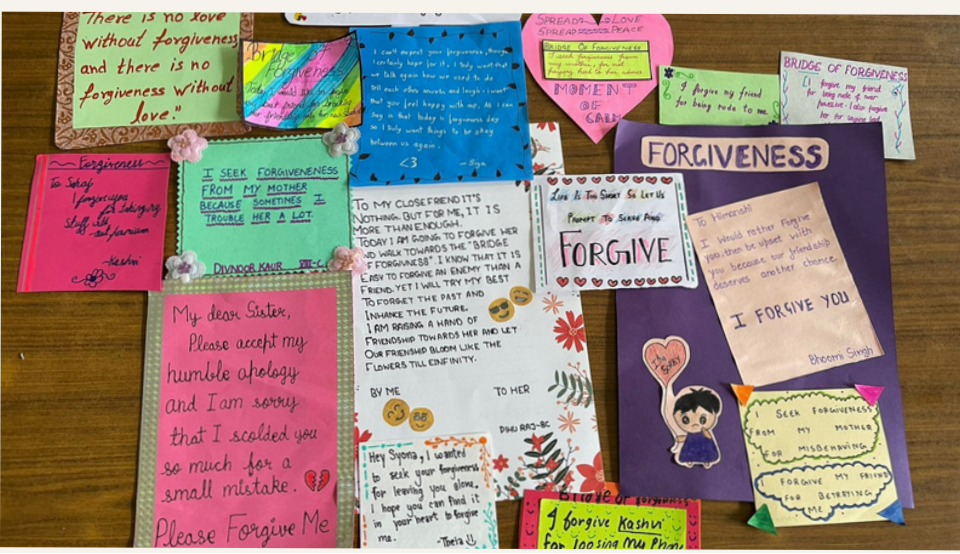 There is no love
without forgiveness
and there is no
forgiveness without
love."
Bridge of
Forgiveness
I can't expect your forgiveness, though
I certainly hope for it. I truly want that
we talk again how we used to do
tell each other morals and laugh. I want
that you feel happy with me. As I can
say is that today is forgiveness day
so I truly want things to be okay
between us again.
<3 - Siya
SPREAD LOVE
SPREAD PEACE
BRIDGE OF FORGIVENESS
I seek forgiveness from
my mother, for not
MOMENT
OF
CALM
I forgive my friend
for being rude to me.
BRIDGE OF FORGIVENESS
I forgive my friend
for being rude
Forgiveness
To Sohaj
I forgive you
for taking my
stuff without permission
-Kashvi
I SEEK FORGIVENENESS
FROM MY MOTHER
BECAUSE SOMETIMES I
TROUBLE HER A LOT.
DIVNOOR KAUR VIII-C
TO MY CLOSE FRIEND IT'S
NOTHING. BUT FOR ME, IT IS
MORE THAN ENOUGH.
TODAY I AM GOING TO FORGIVE HER
AND WALK TOWARDS THE "BRIDGE
OF FORGIVNESS". I KNOW THAT IT IS
EASY TO FORGIVE AN ENEMY THAN A
FRIEND. YET I WILL TRY MY BEST
TO FORGET THE PAST AND
INHANCE THE FUTURE.
I AM RAISING A HAND OF
FRIENDSHIP TOWARDS HER AND LET
OUR FRIENSHIP BLOOM LIKE THE
FLOWERS TILL EINFINITY.
BY ME TO HER
DIHU RAJ-8C
LIFE IS TOO SHORT SO LET US
PROMPT TO SERVE AND
FORGIVE
FORGIVENESS
To Himanshi
I Would rather Forgive
you, then be upset with
you because our friendship
deserves another chance.
I FORGIVE YOU
Bhoomi Singh
I'm
SORRY
I SEEK FORGIVENESS
FROM MY MOTHER
FOR MISBEHAVING
I FORGIVE MY FRIEND
FOR BETRAYING
ME
My dear Sister,
Please accept my
humble apology
and I am sorry
that I scolded you
so much for a
small mistake.
Please Forgive Me
Hey Syona, I wanted
to seek your forgiveness
for leaving you alone.
I hope you can find it
in your heart to forgive
me.
Bridge of forgiveness
I forgive Kashvi
for loosing my Phone